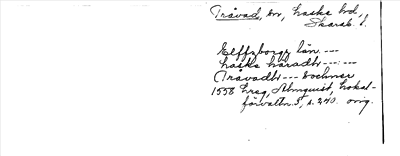 Tråvad, sn, Laske hd,
Skarab. l.
Elffzborgz län ---
Laske häradh ---:---
Tråvadh --- sochner
1558 hreg, Almquist, Lokal-
förvaltn. 3, s. 240. orig.